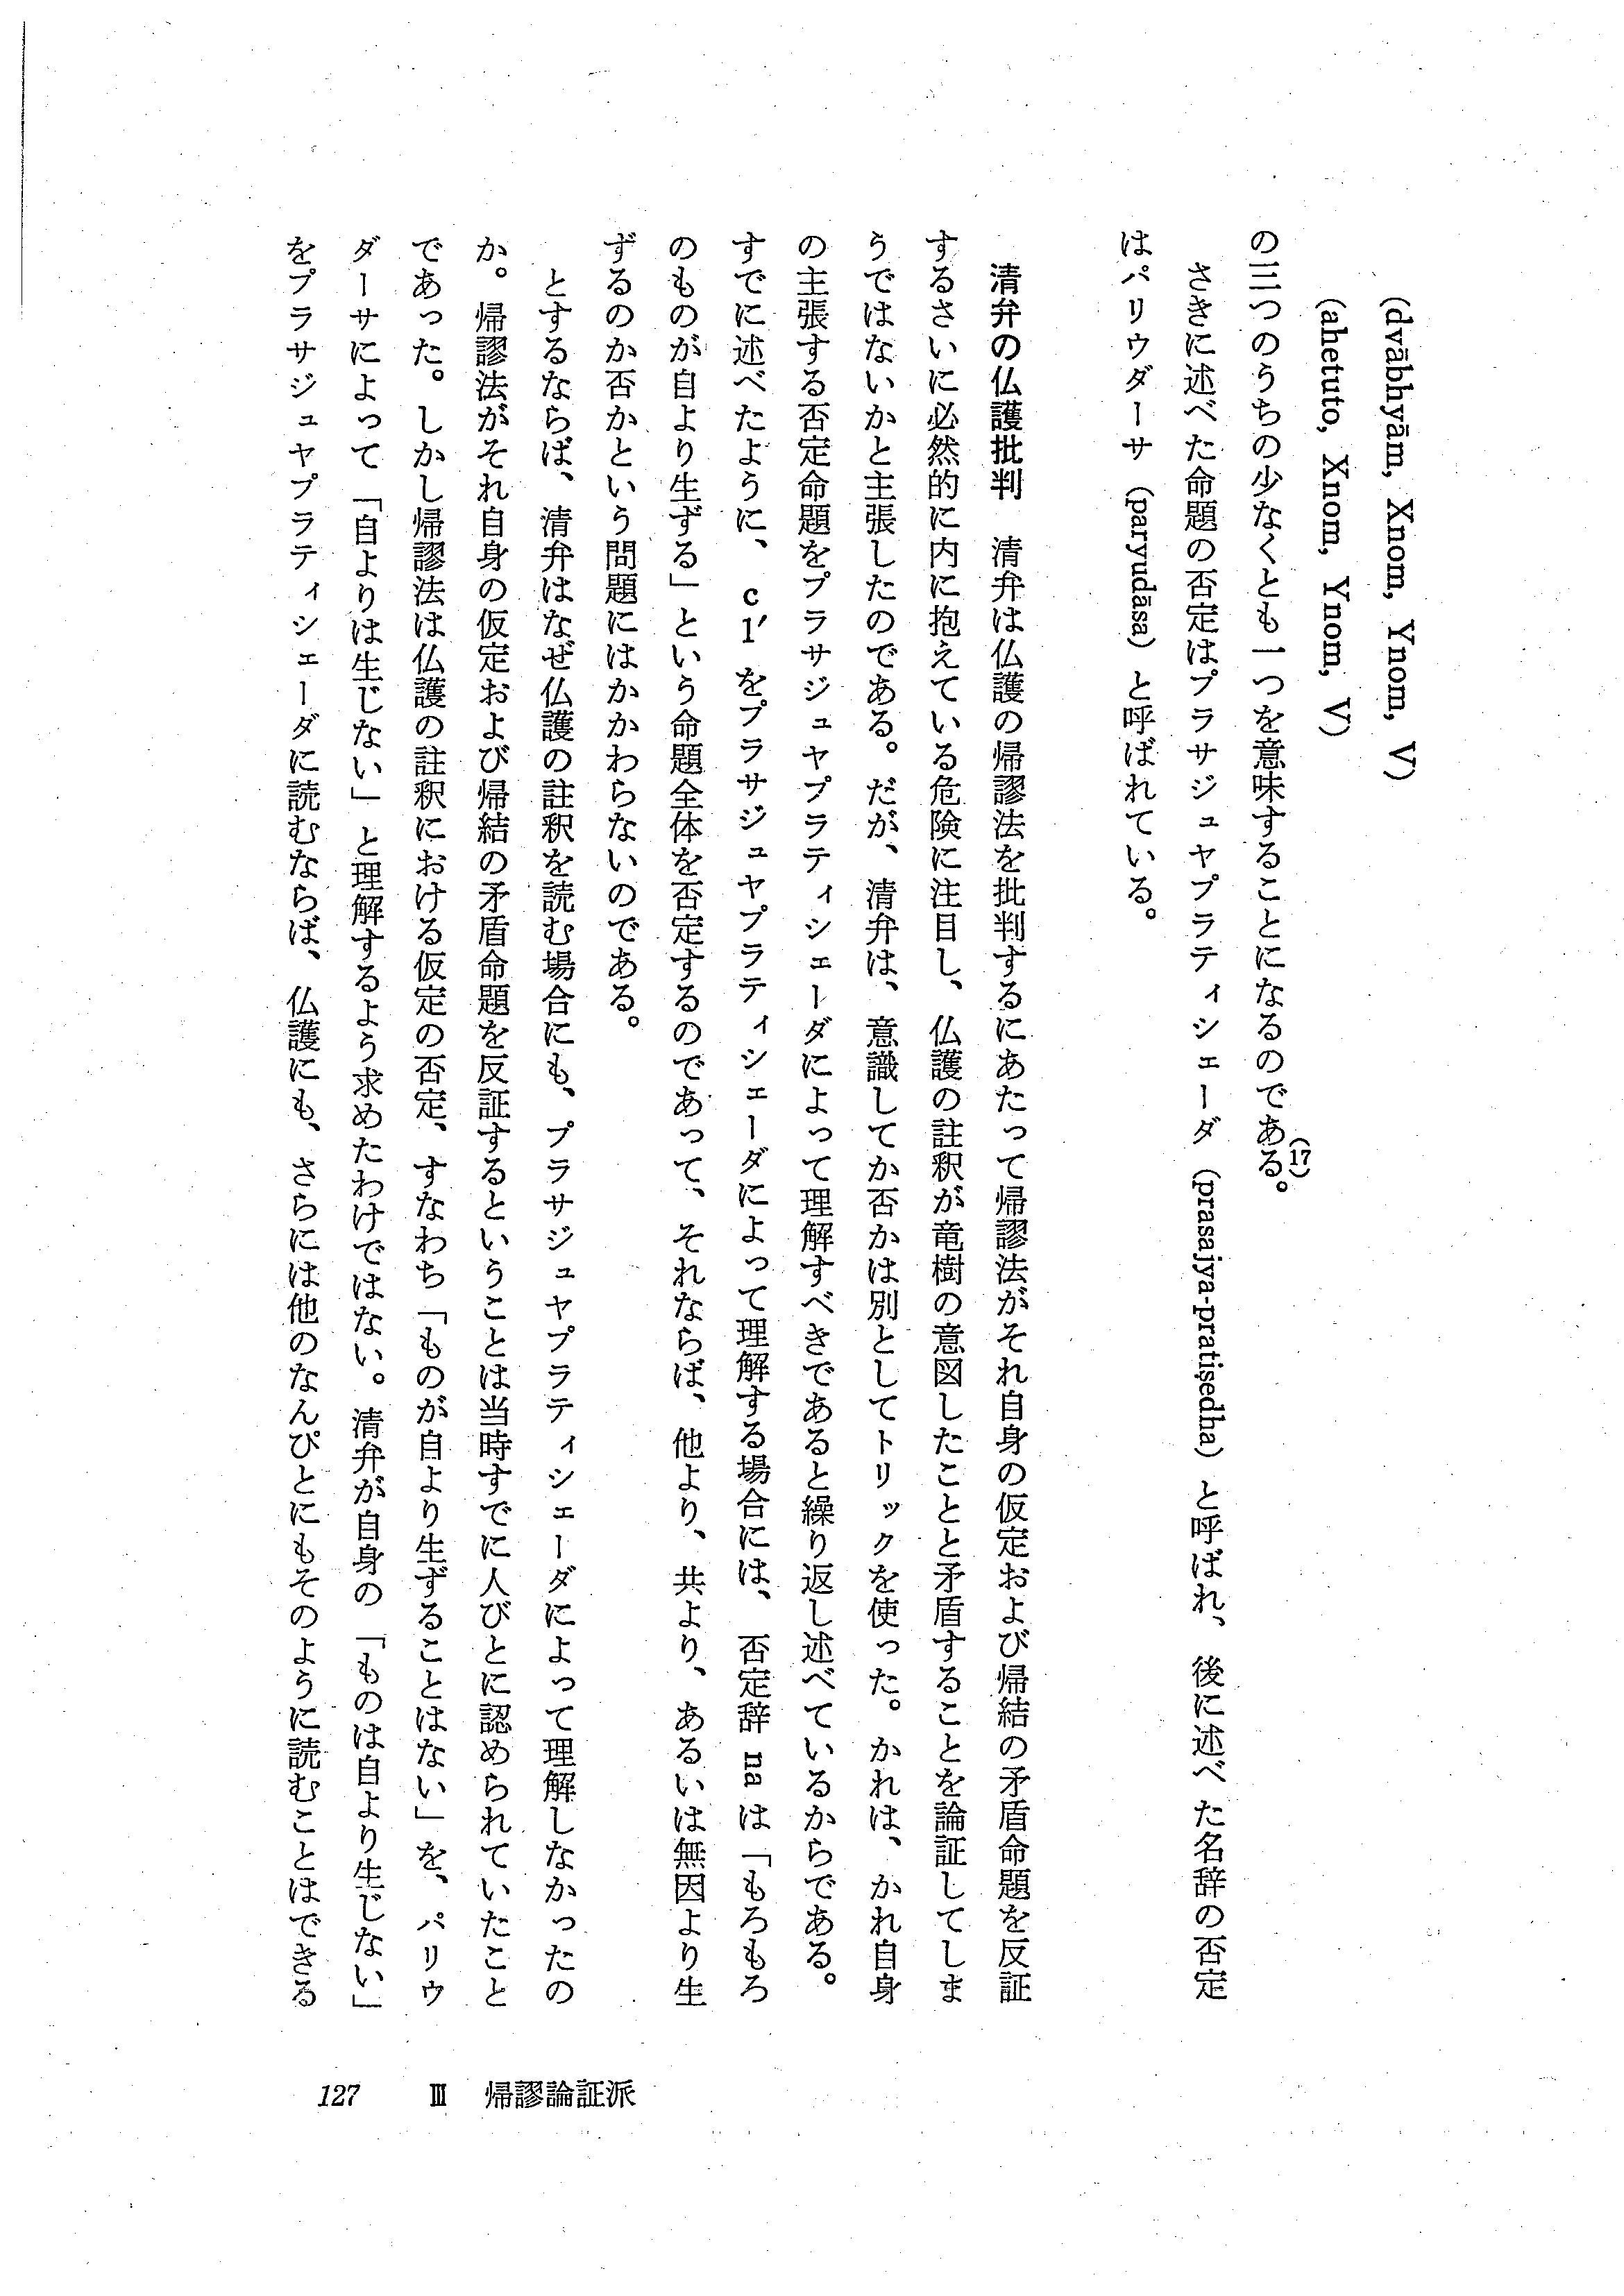 (dvābhyām, Xnom, Ynom, V)
(ahetuto, Xnom, Ynom, V)
の三つのうちの少なくとも一つを意味することになるのである。(17)
さきに述べた命題の否定はプラサジュヤプラティシェーダ(prasajya-pratiṣedha)と呼ばれ、後に述べた名辞の否定
はパリウダーサ(paryudāsa)と呼ばれている。
清弁の仏護批判　清弁は仏護の帰謬法を批判するにあたって帰謬法がそれ自身の仮定および帰結の矛盾命題を反証
するさいに必然的に内に抱えている危険に注目し、仏護の註釈が竜樹の意図したことと矛盾することを論証してしま
うではないかと主張したのである。だが、清弁は、意識してか否かは別としてトリックを使った。かれは、かれ自身
の主張する否定命題をプラサジュヤプラティシェーダによって理解すべきであると繰り返し述べているからである。
すでに述べたように、c1′をプラサジュヤプラティシェーダによって理解する場合には、否定辞 na は「もろもろ
のものが自より生ずる」という命題全体を否定するのであって、それならば、他より、共より、あるいは無因より生
ずるのか否かという問題にはかかわらないのである。
とするならば、清弁はなぜ仏護の註釈を読む場合にも、プラサジュヤプラティシェーダによって理解しなかったの
か。帰謬法がそれ自身の仮定および帰結の矛盾命題を反証するということは当時すでに人びとに認められていたこと
であった。しかし帰謬法は仏護の註釈における仮定の否定、すなわち「ものが自より生ずることはない」を、パリウ
ダーサによって「自よりは生じない」と理解するよう求めたわけではない。清弁が自身の「ものは自より生じない」
をプラサジュヤプラティシェーダに読むならば、仏護にも、さらには他のなんぴとにもそのように読むことはできる
127　Ⅲ　帰謬論証派